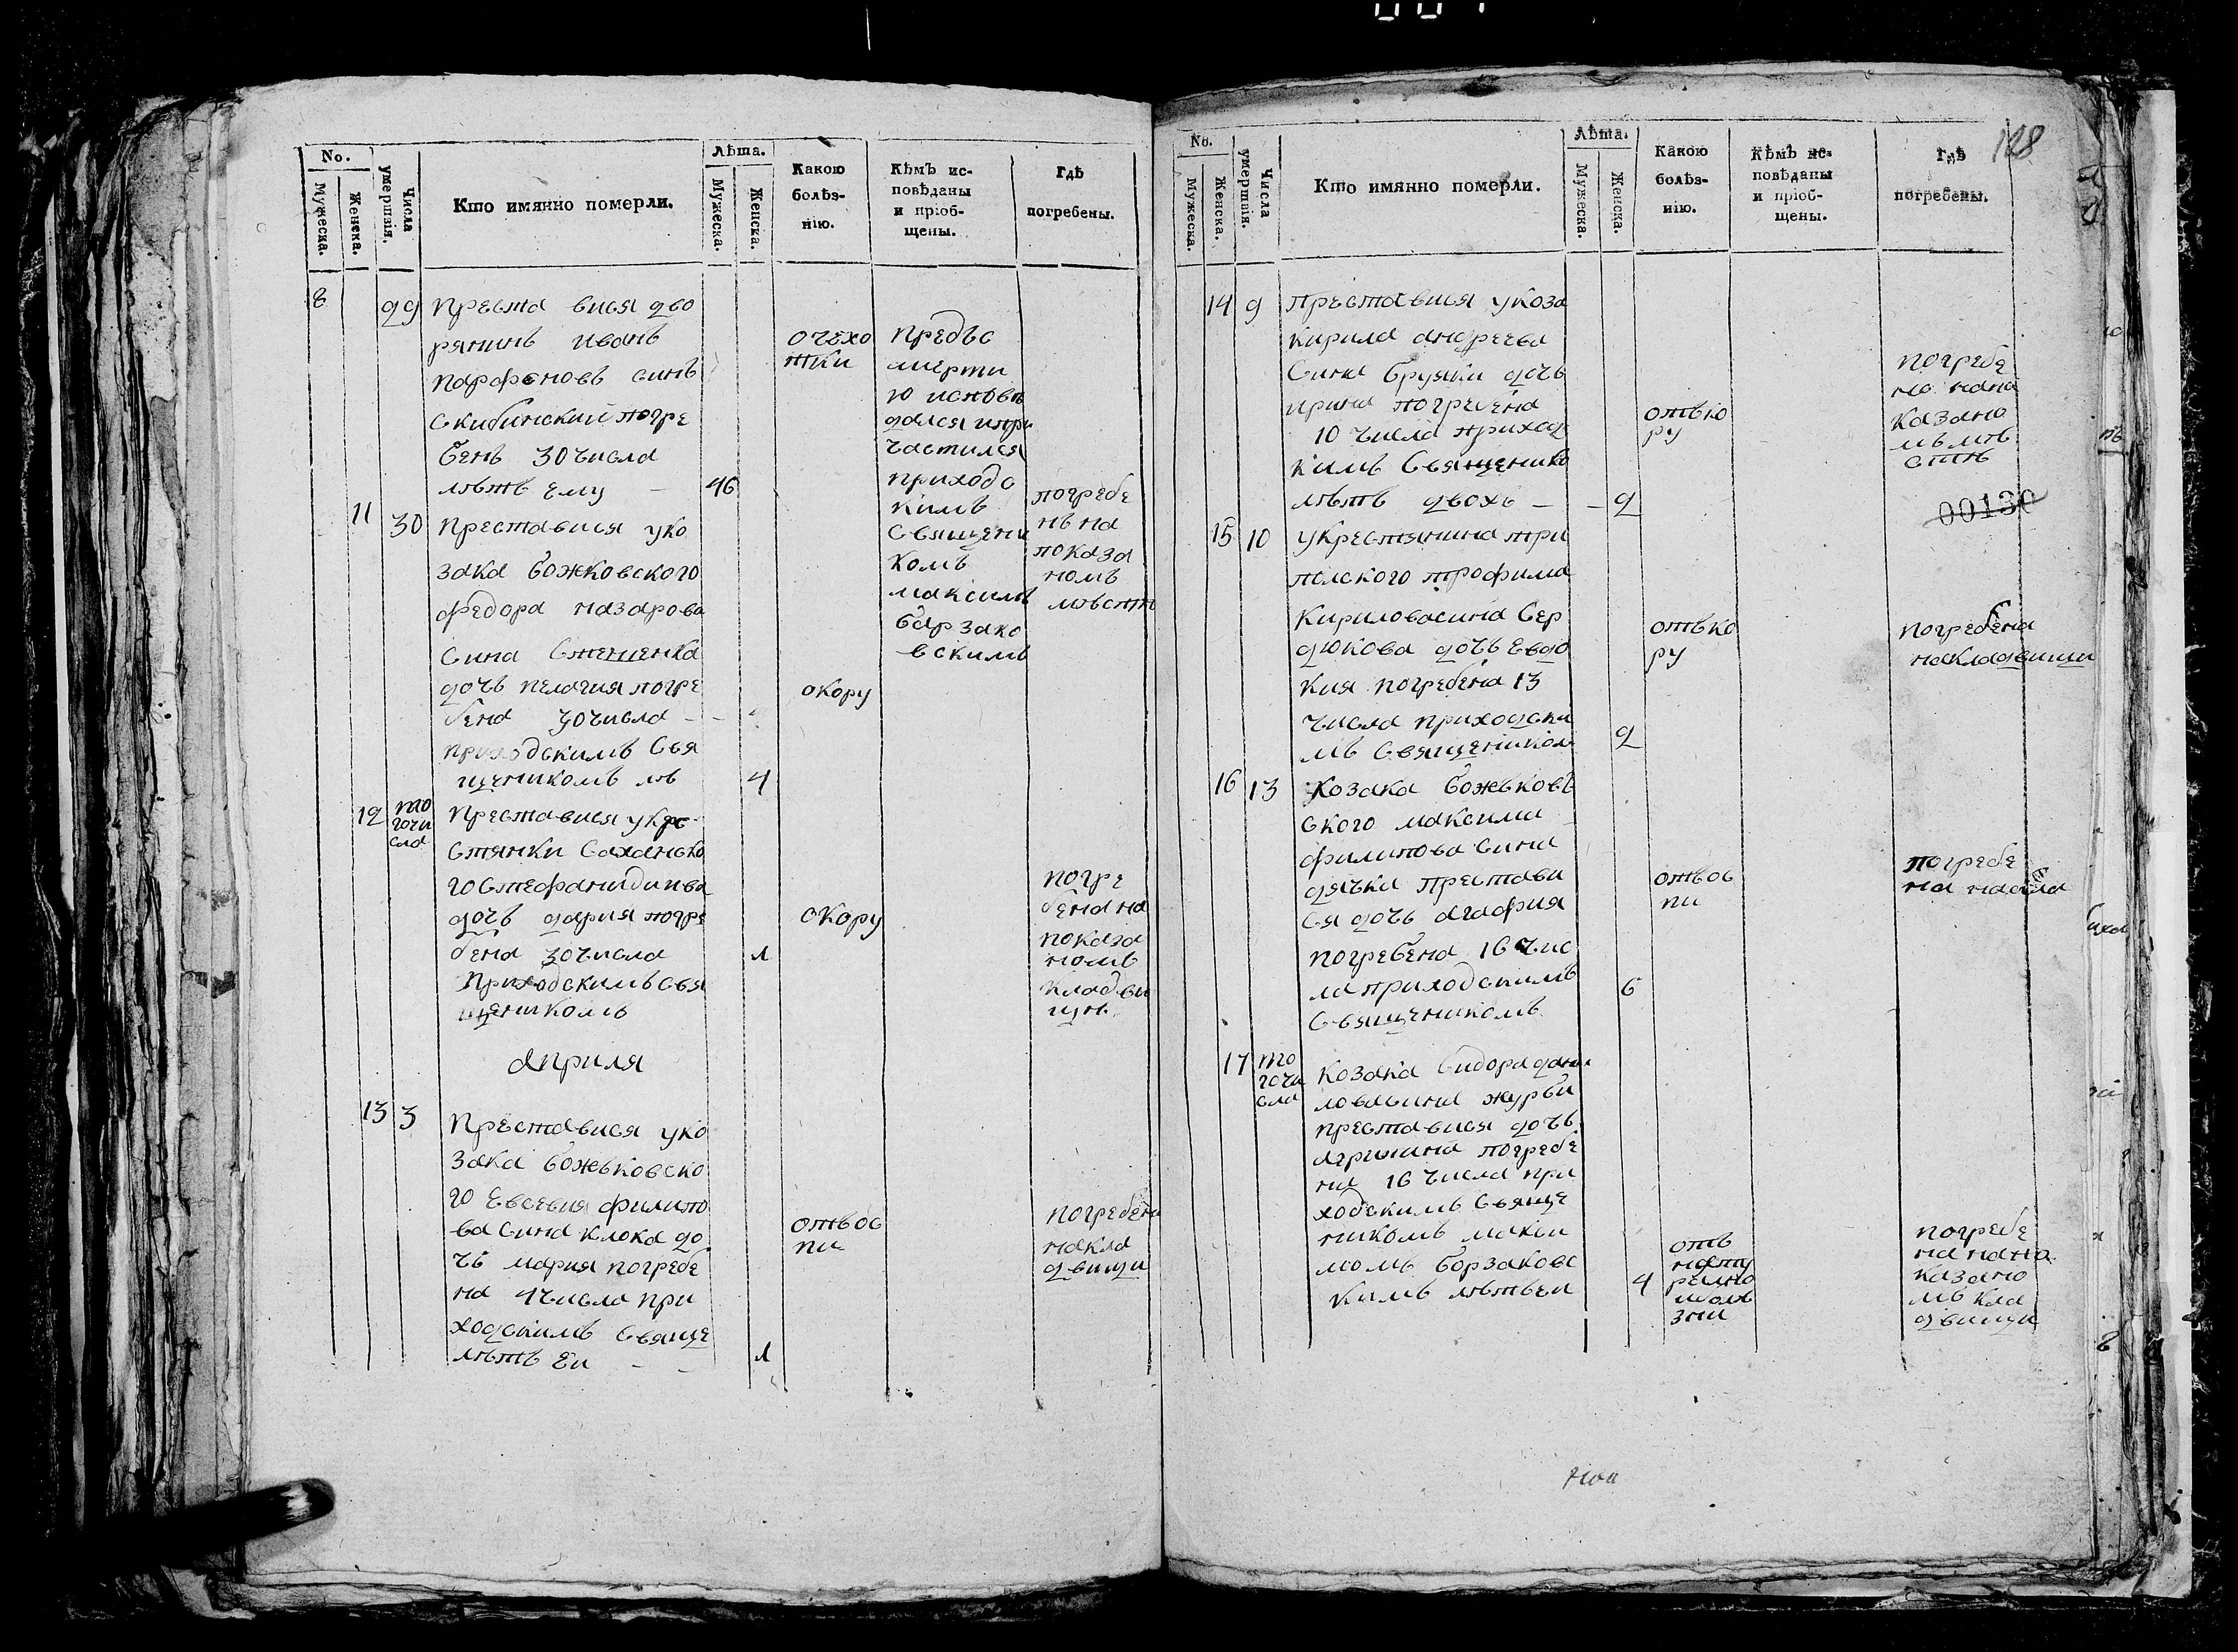 No.
Мужеска.
Женска.
Числа умершвія.
Кто имянно померли.
Лѣта.
Мужеска.
Женска.
Какою
болѣз-
нію.
Кѣмъ ис-
повѣданы
и пріоб-
щены.
Гдѣ
погребены.
8
29
преста вися дво
рянинъ иванъ
парфеновъ синъ
скибинский погре
бенъ 30 числа
лѣтъ ему – 46
очехо
тки
предъс
мерти
ю испове
дался и при
частился
приходс
кимъ
священи
комъ
максимъ
барзако
вскимъ
погребе
нъ на
показа
номъ
мѣстѣ
11
30
преставися уко
зака божковского
федора назарова
сина стещенка
дочь пелагия погре
бена 30 числа - -
приходскимъ свя
щеникомъ лѣ 4
окору
12
то
гочи
сла
преставися укре
стянки саханско
го стефанидинва
дочъ дария погре
бена 30 числа 1
приходскимъ свя
щеникомъ
окору
погре
бена на
показа
номъ
кладви
щѣ
априля
13
3
преставися уко
зака божьковско
го Евсевия филипо
ва сина клока до
чъ мария погребе
на 4 числа при
ходскимъ свяще
лѣтъ Еи - - 1
отвос
пи
погребена
накла
двищи
No.
Мужеска.
Женска.
Числа умершвія.
Кто имянно померли.
Лѣта.
Мужеска.
Женска.
Какою
болѣз-
нію.
Кѣмъ ис-
повѣданы
и пріоб-
щены.
Гдѣ
погребены.
128
14
9
преставися укоза
кирила андреева
сина бруяки дочъ
ирина погребена
10 числа приход
кимъ священико
лѣтъ двохъ – - 2
отвко
ру
погребе
но нана
казано
мъ мѣ
стѣ
00130
15
10
укрестянина три
полского трофима
кириловасина сер
дюкова дочъ Евдо
кия погребена 13
числа приходски
мъ священиком 2
отвко
ру
погребена
накладвищи
16
13
козака божьковъ
ского максима
филипова сина
дячка престави
ся дочъ агафия
погребена 16 чис
ла приходскимъ 6
священикомъ
отвос
пи
погребе
на накла
17
то
гочи
сла
козака сидора дани
ловасина журби
преставися дочъ
агрипина погребе
на 16 числа при
ходскимъ свяще
никомъ макси
момъ борзаковс
кимъ лѣтъеи 4
отъ
нату
рално
иболѣ
зни
погребе
на нана
казано
мъ кла
двищи